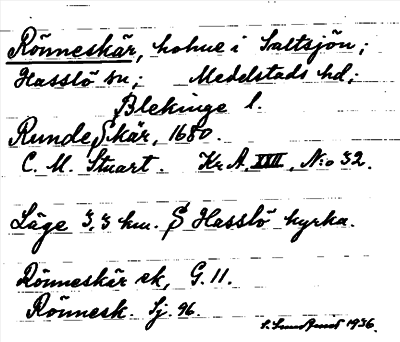 Rönneskär, holme i Saltsjön;
Hasslö sn; Medelstads hd;
Blekinge l.
Runde Skär, 1680.
C. M. Stuart. Kr. A. XXII, No 32.
Läge 3,3 km. S Hasslö kyrka.
Rönneskär ek, G. 11.
Rönnesk. Sj. 96.
1936.